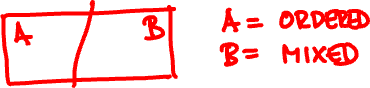 A B
A = ORDERED
B = MIXED